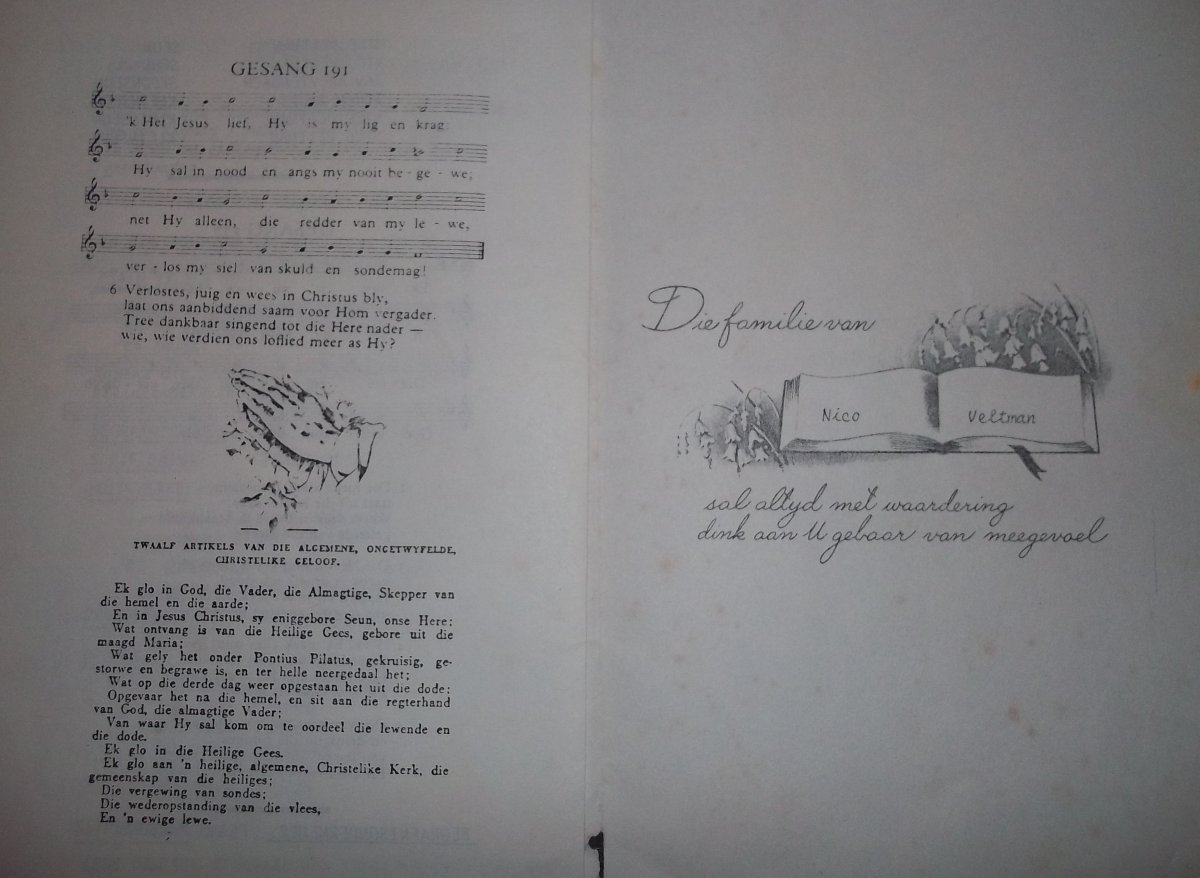 GESANG 191
'k Het Jesus lief, Hy is my lig en krag:
Hy sal in nood en angs my nooit be - ge - we;
net Hy alleen, die redder van my le - we,
ver - los my siel van skuld en sondemag!
6 Verlostes, juig en wees in Christus bly,
laat ons aanbiddend saam voor Hom vergader.
Tree dankbaar singend tot die Here nader —
wie, wie verdien ons loflied meer as Hy?
TWAALF ARTIKELS VAN DIE ALGEMENE, ONGETWYFELDE,
CHRISTELIKE GELOOF.
Ek glo in God, die Vader, die Almagtige, Skepper van
die hemel en die aarde;
En in Jesus Christus, sy eniggebore Seun, onse Here;
Wat ontvang is van die Heilige Gees, gebore uit die
maagd Maria;
Wat gely het onder Pontius Pilatus, gekruisig, ge-
storwe en begrawe is, en ter helle neergedaal het;
Wat op die derde dag weer opgestaan het uit die dode;
Opgevaar het na die hemel, en sit aan die regterhand
van God, die almagtige Vader;
Van waar Hy sal kom om te oordeel die lewende en
die dode.
Ek glo in die Heilige Gees.
Ek glo aan 'n heilige, algemene, Christelike Kerk, die
gemeenskap van die heiliges;
Die vergewing van sondes;
Die wederopstanding van die vlees,
En 'n ewige lewe.
Die familie van
Nico Veltman
sal altyd met waardering
dink aan U gebaar van meegevoel